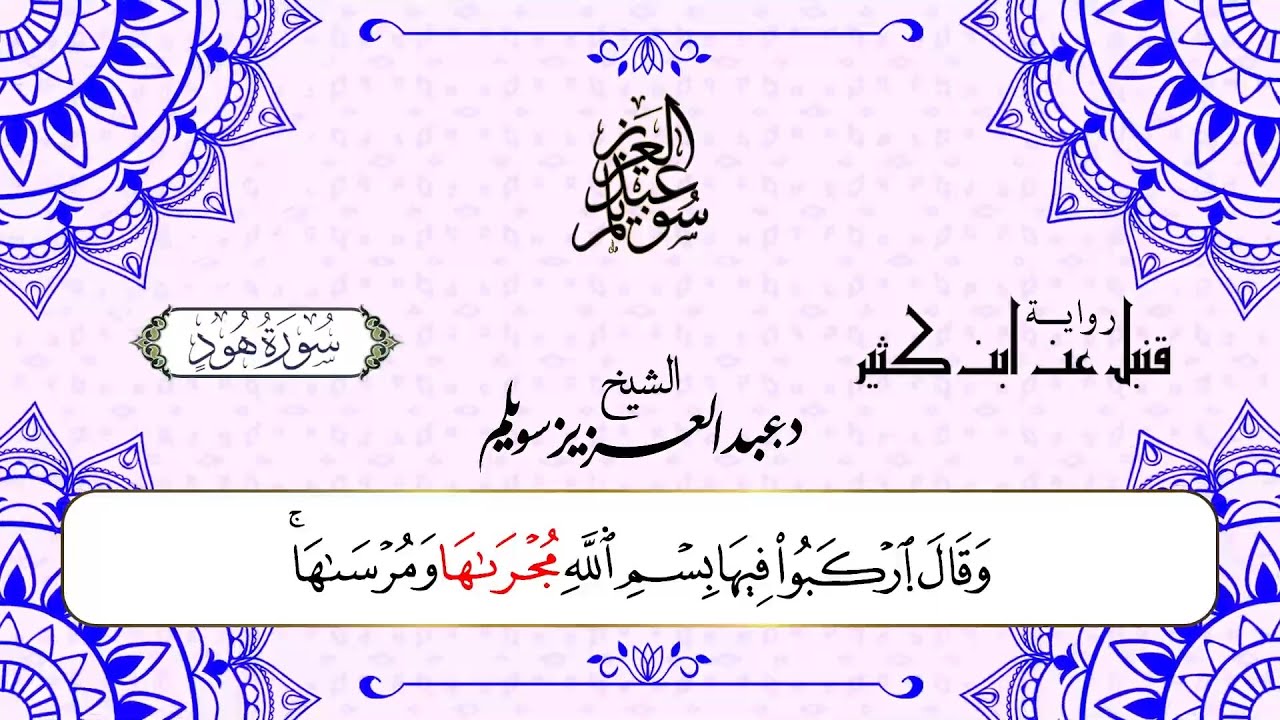 عبد العزيز سويلم
رواية
قنبل عن ابن كثير
سُورَةُ هُودٍ
الشيخ
د عبد العزيز سويلم
وَقَالَ ٱرْكَبُوا۟ فِيهَا بِسْمِ ٱللَّهِ مُجْرَىٰهَا وَمُرْسَىٰهَا ۚ